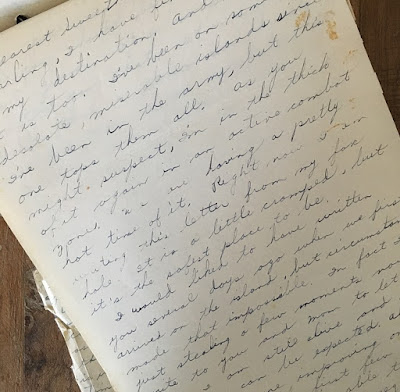 dearest sweet
darling, I have
my destination, and
it is for. I've been on some
desolate, miserable islands since
I've been in the army, but this
one tops them all. As you
might suspect, I'm in the thick
of it again in an active combat
zone. We are having a pretty
hot time of it. Right now I am
writing this letter from my fox
hole. It is a little cramped, but
it's the safest place to be.
I would liked to have written
you several days ago when we first
arrived on the island, but circumstan
made that impossible. In fact I
just stealing a few moments now
write to you and mom to let
I am still alive and
can be expected a
are improving on
first few